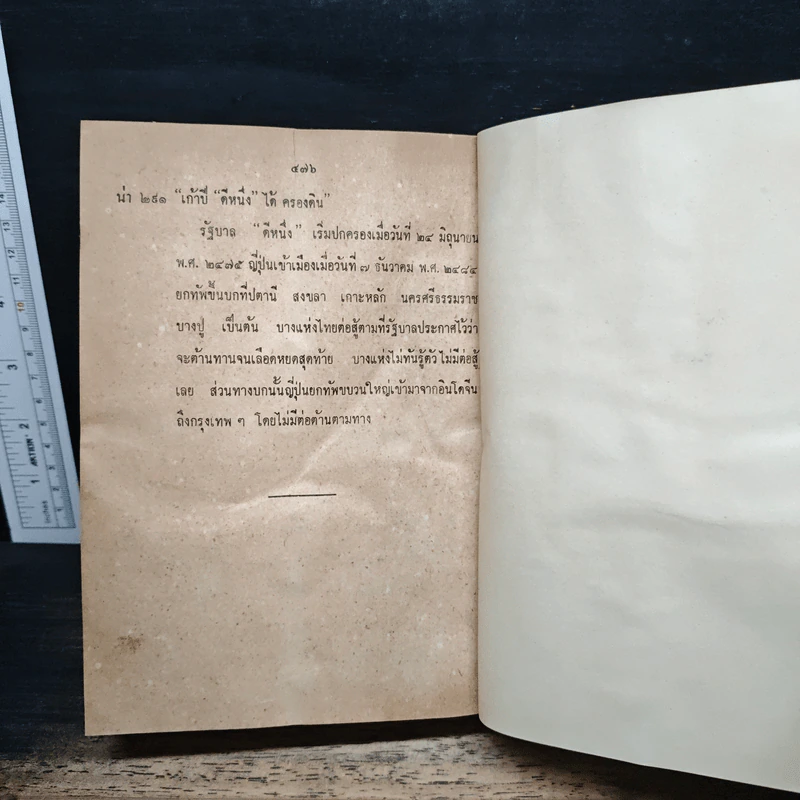 ๔๗๖
น่า ๒๙๑ “เก้าปี “ดีหนึ่ง” ได้ ครองดิน”
รัฐบาล “ดีหนึ่ง” เริ่มปกครองเมื่อวันที่ ๒๔ มิถุนายน
พ.ศ. ๒๔๗๕ ญี่ปุ่นเข้าเมืองเมื่อวันที่ ๗ ธันวาคม พ.ศ. ๒๔๘๔
ยกทัพขึ้นบกที่ปตานี สงขลา เกาะหลัก นครศรีธรรมราช
บางปู เป็นต้น บางแห่งไทยต่อสู้ตามที่รัฐบาลประกาศไว้ว่า
จะต้านทานจนเลือดหยดสุดท้าย บางแห่งไม่ทันรู้ตัว ไม่มีต่อสู้
เลย ส่วนทางบกนั้นญี่ปุ่นยกทัพขบวนใหญ่เข้ามาจากอินโดจีน
ถึงกรุงเทพ ๆ โดยไม่มีต่อต้านตามทาง